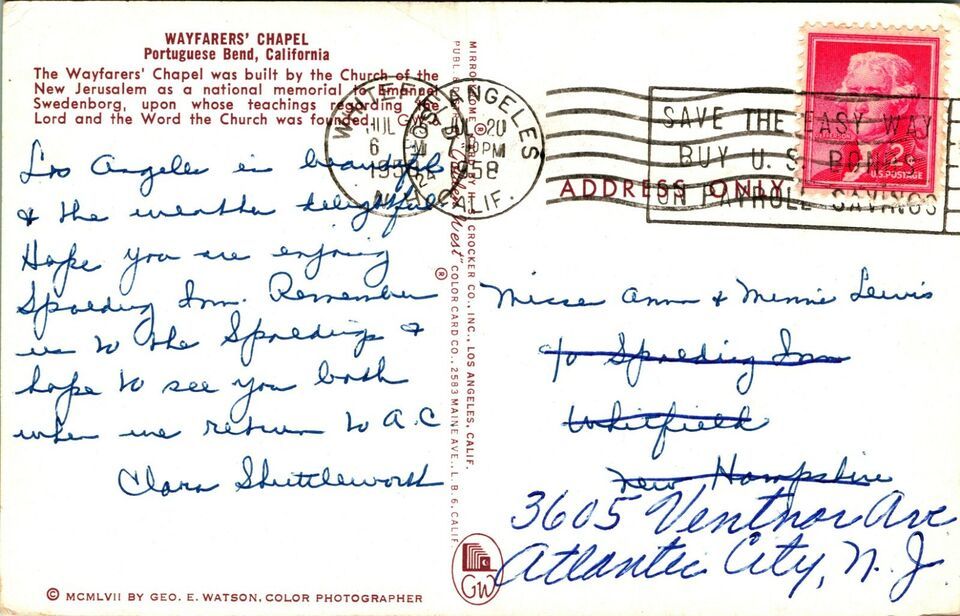 WAYFARERS' CHAPEL
Portuguese Bend, California
The Wayfarers' Chapel was built by the Church of the
New Jerusalem as a national memorial to Emanuel
Swedenborg, upon whose teachings regarding the
Lord and the Word the Church was founded.
Los Angeles is beautiful
& the weather delightful
Hope you are enjoying
Spalding Inn. Remember
us to the Spaldings &
hope to see you both
when we return to A.C
Clara Shuttleworth
© MCMLVII BY GEO. E. WATSON, COLOR PHOTOGRAPHER
CROCKER CO., INC., LOS ANGELES, CALIF.
West" ® COLOR CARD CO., 2583 MAINE AVE., L. B. 6, CALIF.
GW
LOS ANGELES
JUL 20
PM
1958
CALIF.
SAVE THE EASY WAY
BUY U.S. BONDS
ON PAYROLL SAVINGS
2¢
U.S. POSTAGE
ADDRESS ONLY
Misses Anna & Minnie Lewis
c/o Spalding Inn
Whitfield
New Hampshire
3605 Ventnor Ave
Atlantic City, N. J.